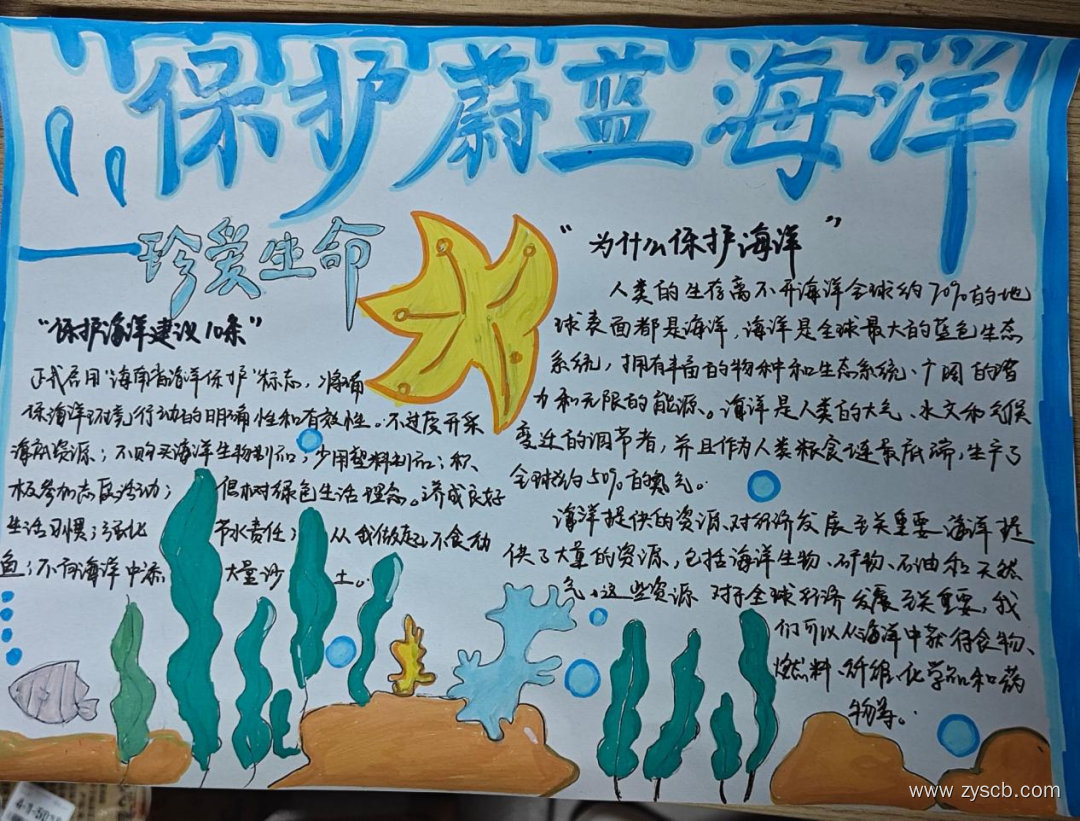 保护蔚蓝海洋
珍爱生命
“保护海洋建议10条”
正式启用“海南省海洋保护”标志，将确
保海洋环境行动的明确性和有效性。不过度开采
海底资源；不购买海洋生物制品；少用塑料制品；积
极参加志愿活动；倡树绿色生活理念。养成良好
生活习惯；强化节水责任；从我做起不食幼
鱼；不向海洋中添大量沙土。
“为什么保护海洋”
人类的生存离不开海洋全球约70%的地
球表面都是海洋，海洋是全球最大的蓝色生态
系统，拥有丰富的物种和生态系统、广阔的潜
力和无限的能源。海洋是人类的大气、水文和气候
变迁的调节者，并且作为人类粮食链最底端，生产了
全球约50%的氧气。
海洋提供的资源对经济发展至关重要 海洋提
供了大量的资源，包括海洋生物、矿物、石油和天然
气，这些资源对于全球经济发展至关重要，我
们可以从海洋中获得食物、
燃料、纤维、化学品和药
物等。
www.zyscb.com